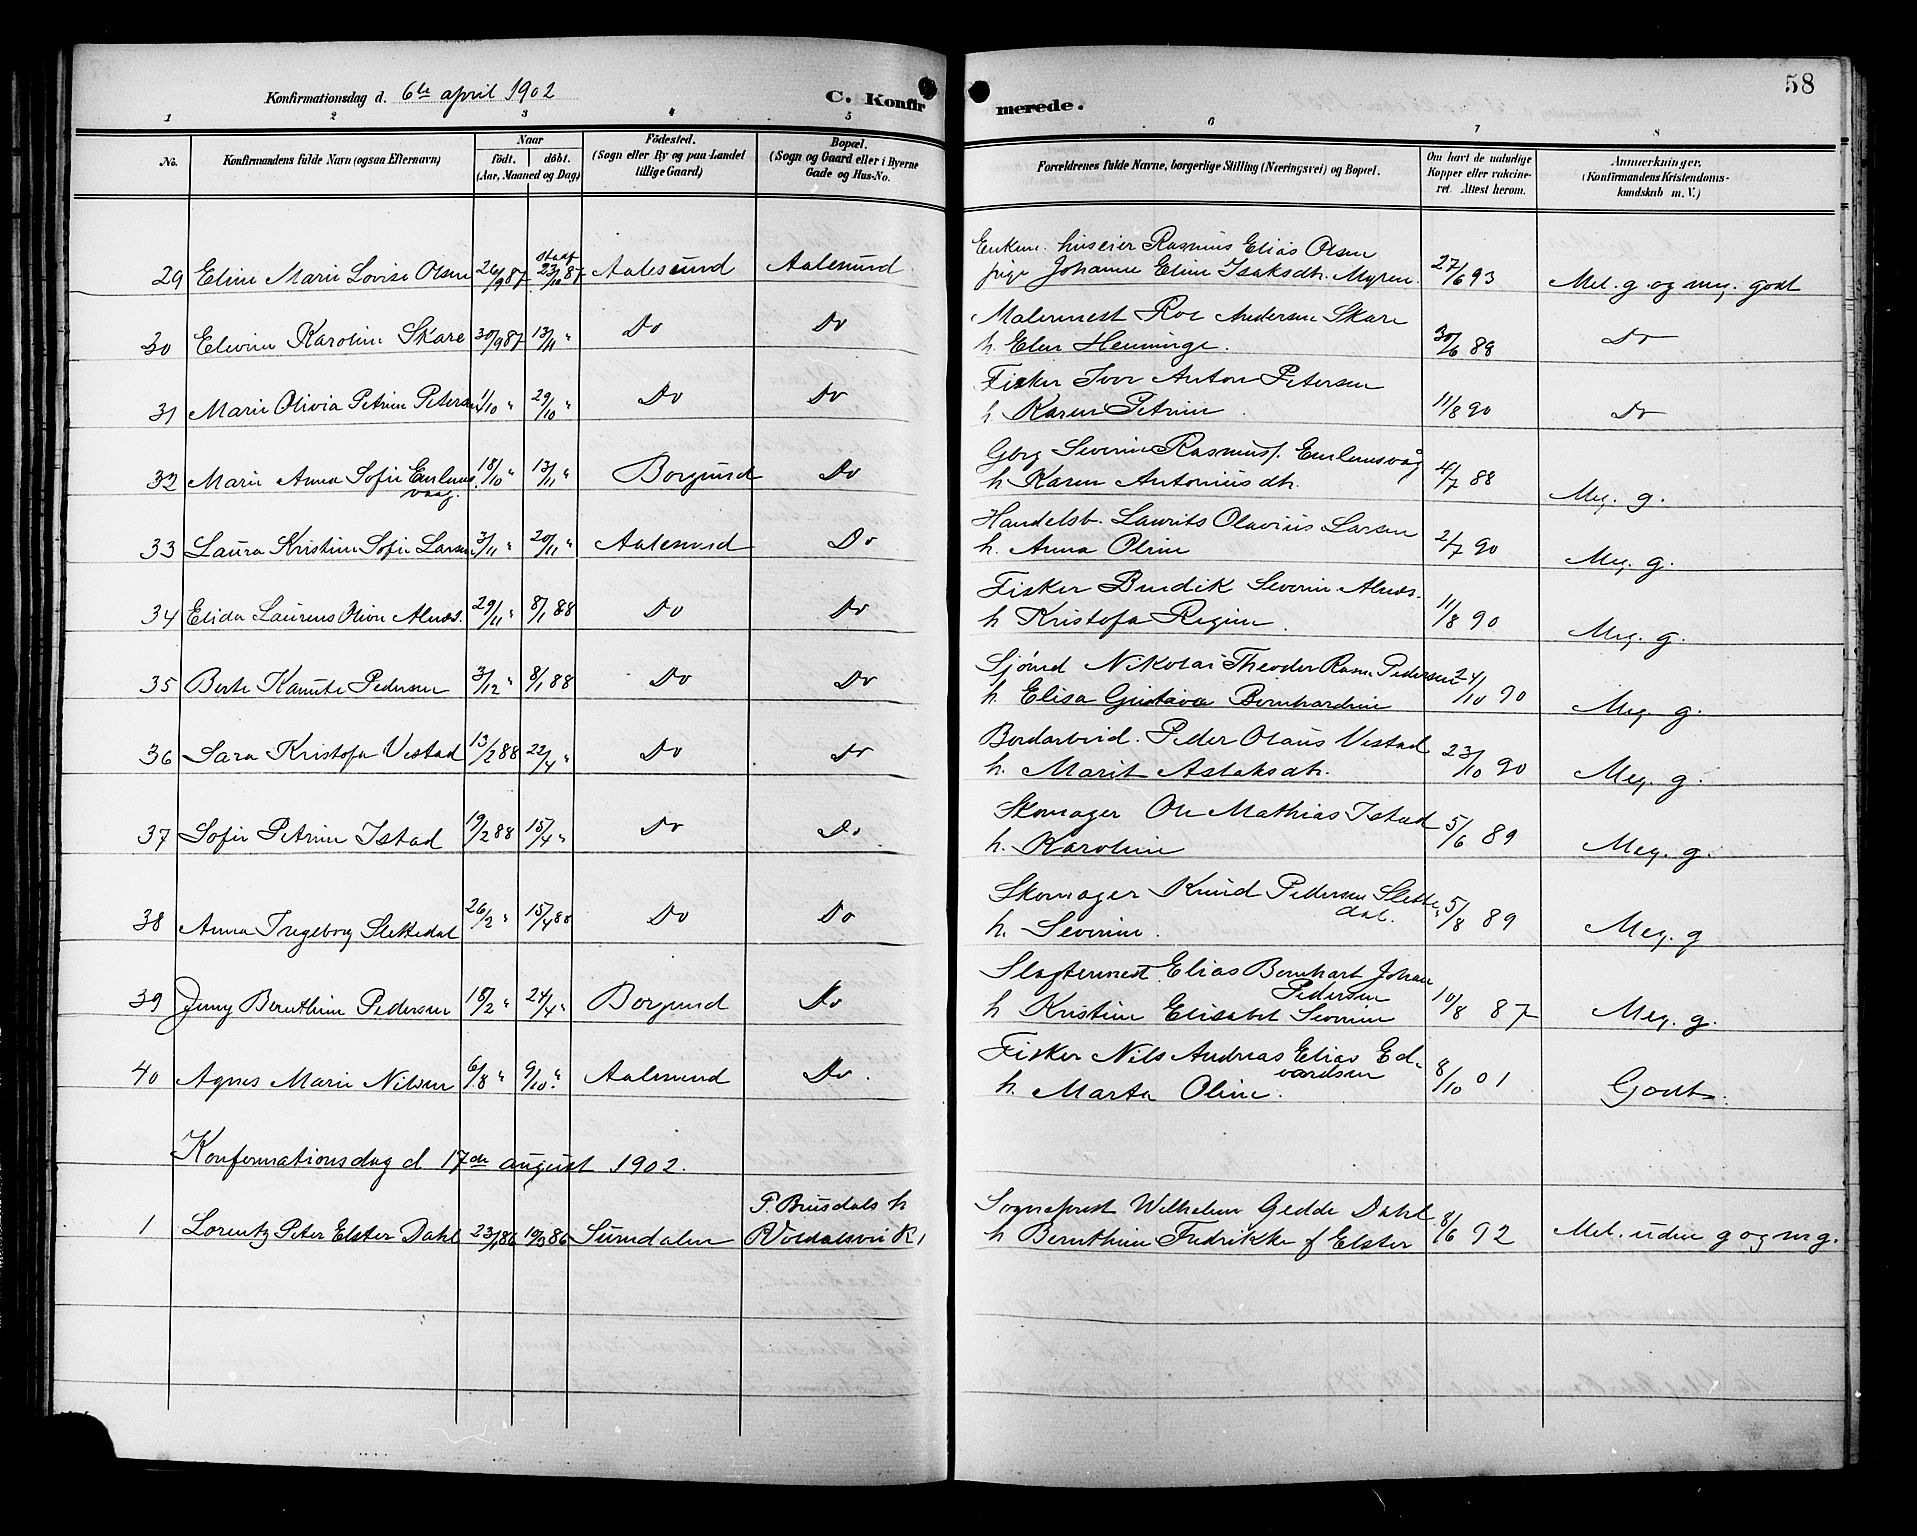 58
Konfirmationsdag d. 6te april 1902
C. Konfirmerede.
1 2 3 4 5 6 7 8
No. Konfirmandens fulde Navn (ogsaa Efternavn) Naar födt. döbt. (Aar, Maaned og Dag) Födested. (Sogn eller By og paa Landet tillige Gaard) Bopæl. (Sogn og Gaard eller i Byerne Gade og Hus-No. Forældrenes fulde Navne, borgerlige Stilling (Næringsvei) og Bopæl. Om havt de naturlige Kopper eller vakcineret. Attest herom. Anmærkninger. (Konfirmandens Kristendomskundskab m. V.)
Enkem. huseier Rasmus Elias Olsen
29 Eline Marie Lovise Olsen 26/9 87 23/10 87 Aalesund Aalesund pige Johanne Eline Isaksdtr. Myren. 27/6 93 Mel. g. og meg. godt
Malermest Roe Andersen Skare
30 Elevine Karoline Skare 30/9 87 13/11 " Do Do h. Elen Henninge. 30/6 88 Do
Fisker Ivor Anton Petersen
31 Marie Olivia Petrine Petersen 1/10 " 29/10 " Do Do h Karen Petrine 11/8 90 Do
Gbrg Severin Rasmus f. Emlemsvåg
32 Marie Anna Sofie Emlemsvaag. 18/10 " 13/11 " Borgund Do h Karen Antoniusdtr. 4/7 88 Meg. g.
Handelsb. Laurits Olavius Larsen
33 Laura Kristine Sofie Larsen 3/11 " 20/11 " Aalesund Do h. Anna Oline 2/7 90 Meg. g.
Fisker Bendik Severin Alnæs.
34 Elida Laurens Olivie Alnæs. 29/11 " 8/1 88 Do Do h Kristofa Regine. 11/8 90 Meg. g.
Sjömd Nikolai Theodor Rasm. Pedersen
35 Berte Kanute Pedersen 3/12 " 8/1 88 Do Do h. Elisa Gustava Bernhardine 24/10 90 Meg. g.
Bordarbeid. Peder Olaus Vestad
36 Sara Kristofa Vestad 13/2 88 22/4 " Do Do h. Marit Aslaksdtr. 23/10 90 Meg. g.
Skomager Ole Mathias Istad
37 Sofie Petrine Istad 19/2 88 15/4 " Do Do h. Karoline 5/6 89 Meg. g.
Skomager Knud Pedersen Slettedal.
38 Anna Ingeborg Slettedal 26/2 " 15/4 88 Do Do h. Severine. 5/8 89 Meg. g
Slagtermest. Elias Bernhart Johan Pedersen
39 Jenny Bernthine Pedersen 18/2 " 24/4 " Borgund Do h Kristine Elisabet Severine 10/8 87 Meg. g.
Fisker Nils Andreas Elias Edvardsen
40 Agnes Marie Nilsen 6/8 " 9/10 " Aalesund Do. h. Marta Oline. 8/10 01 Godt.
Konfirmationsdag d 17de august 1902.
P. Brusdals h Sogneprest Wilhelm Gedde Dahl
1 Lorentz Peter Elster Dahl 23/1 86 19/3 86 Sundalen h Bernthine Fredrikke f Elster 8/6 92 Mel. uden g og mg.